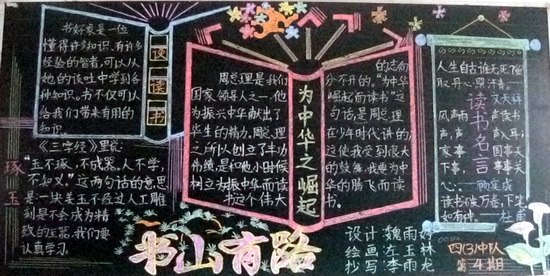 书好象是一位
懂得许多知识、有许多
经验的智者,可以从
他的谈吐中学到各
种知识。书不仅可以
给我们带来有用的
知识
谈
读
书
《三字经》里说:
“玉不琢,不成器。人不学,
不知义。”这两句话的意思
是一块美玉不经过人工雕
刻是不会成为精
致的玉器,我们要
认真学习。
琢
玉
周总理是我们
国家领导人之一,他
为振兴中华献出了
毕生的精力。周总理
之所以创立了丰功
伟绩,是和他小时候
树立为振中华而读
书这个伟大
为中华之崛起
的志向
分不开的。“为中华
崛起而读书”这
句话,是周总理
在少年时代讲的,
这使我受到很大
的鼓舞,我要为中
华的腾飞而读
书。
人生自古谁无死,留
取丹心照汗青。
——文天祥
读书名言
风声雨声读书
声,声声入耳;
家事国事天
下事,事事关
心。——顾宪成
读书破万卷,下笔
如有神。——杜甫
书山有路
设计 魏雨好
绘画 左玉林
抄写 李雨龙
四(3)中队
第4期